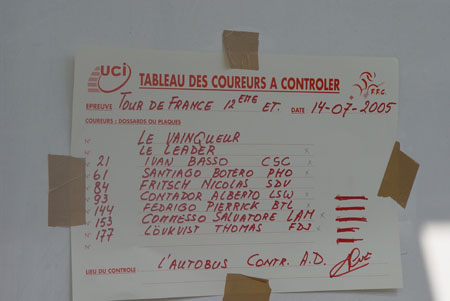 UCI TABLEAU DES COUREURS A CONTROLER
EPREUVE TOUR DE FRANCE 12EME ET. DATE 14-07-2005
COUREURS : DOSSARDS OU PLAQUES
LE VAINQUEUR
LE LEADER
21 IVAN BASSO CSC
61 SANTIAGO BOTERO PHO
84 FRITSCH NICOLAS SDV
93 CONTADOR ALBERTO LSW
144 FEDRIGO PIERRICK BTL
153 COMMESSO SALVATORE LAM
177 LÖVKVIST THOMAS FDJ
LIEU DU CONTRÔLE L'AUTOBUS CONTR. A.D.